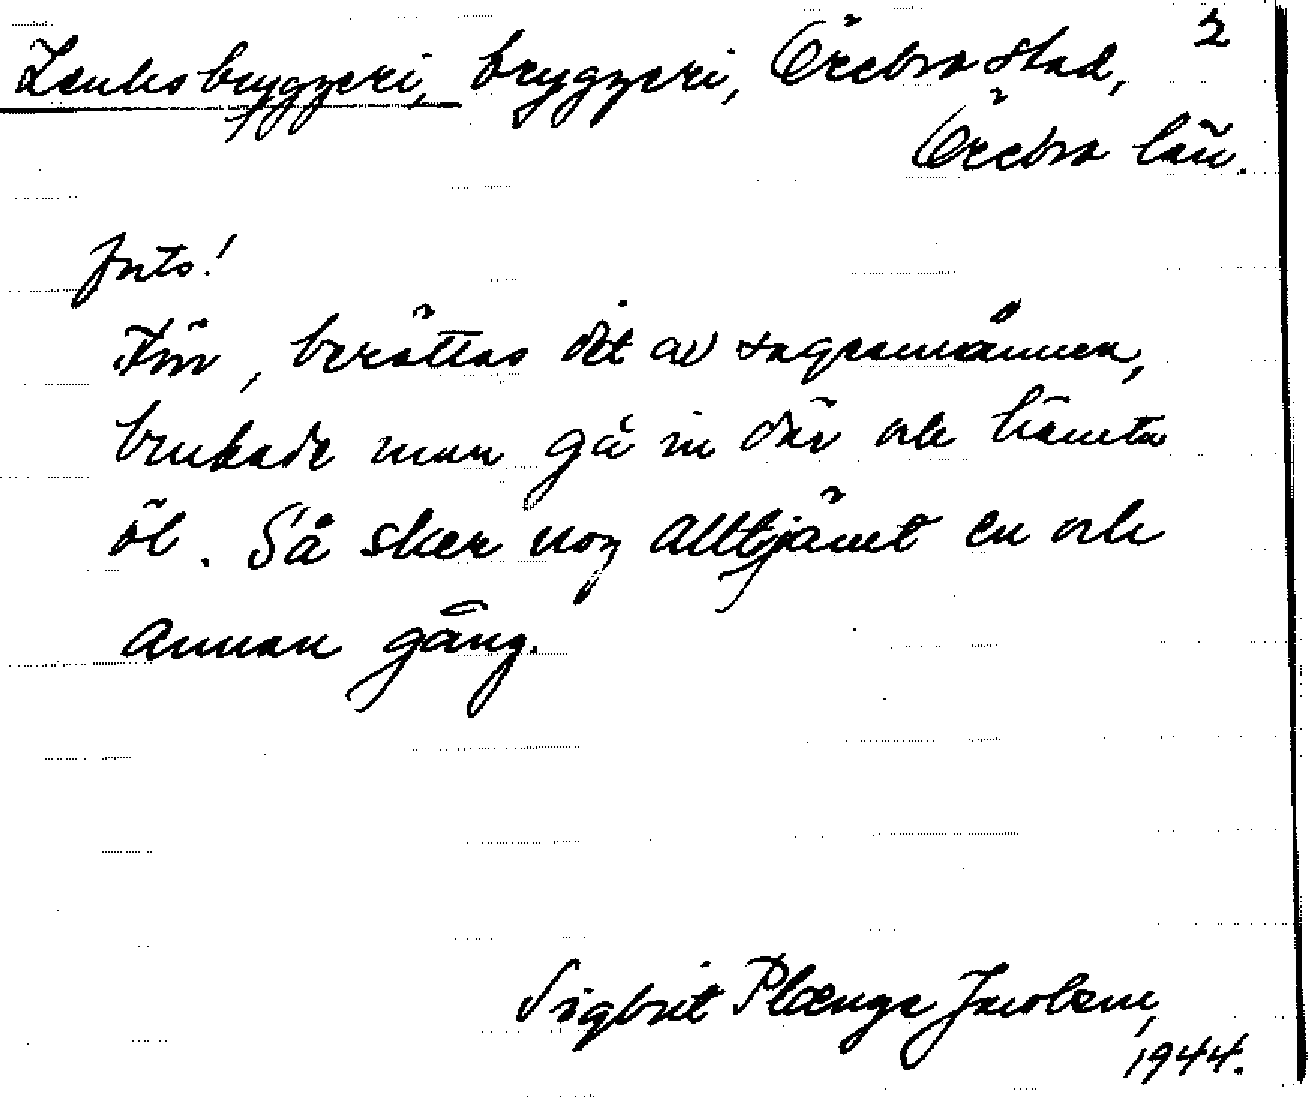 2
Lenksbryggeri, bryggeri, Örebro stad,
Örebro län.
Jnto!
Förr, berättas det av sagesmännen,
brukade man gå in där och hämta
öl. Så sker nog alltjämt en och
annan gång.
Sigbrit Plænge Jacobson,
1944.